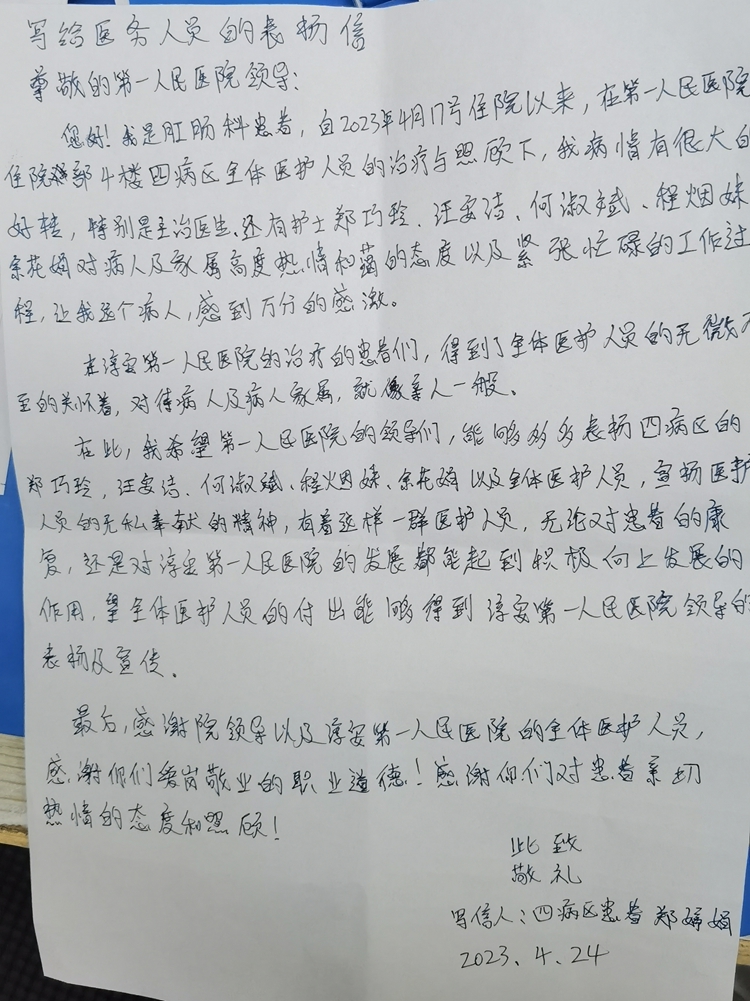 写给医务人员的表扬信
尊敬的第一人民医院领导:
您好!我是肛肠科患者,自2023年4月17号住院以来,在第一人民医院
住院部4楼四病区全体医护人员的治疗与照顾下,我病情有很大的
好转,特别是主治医生、还有护士郑巧玲、汪安洁、何淑斌、程烟妹
余花娟对病人及家属高度热情和蔼的态度以及紧张忙碌的工作过
程,让我这个病人,感到万分的感激。
在淳安第一人民医院的治疗的患者们,得到了全体医护人员的无微不
至的关怀着,对待病人及病人家属,就像亲人一般。
在此,我希望第一人民医院的领导们,能够多多表扬四病区的
郑巧玲,汪安洁、何淑斌、程烟妹、余花娟以及全体医护人员,宣扬医护
人员的无私奉献的精神,有着这样一群医护人员,无论对患者的康
复,还是对淳安第一人民医院的发展都能起到积极向上发展的
作用,望全体医护人员的付出能够得到淳安第一人民医院领导的
表扬及宣传。
最后,感谢院领导以及淳安第一人民医院的全体医护人员,
感谢你们爱岗敬业的职业道德!感谢你们对患者亲切
热情的态度和照顾!
此致
敬礼
写信人:四病区患者 郑娟
2023.4.24